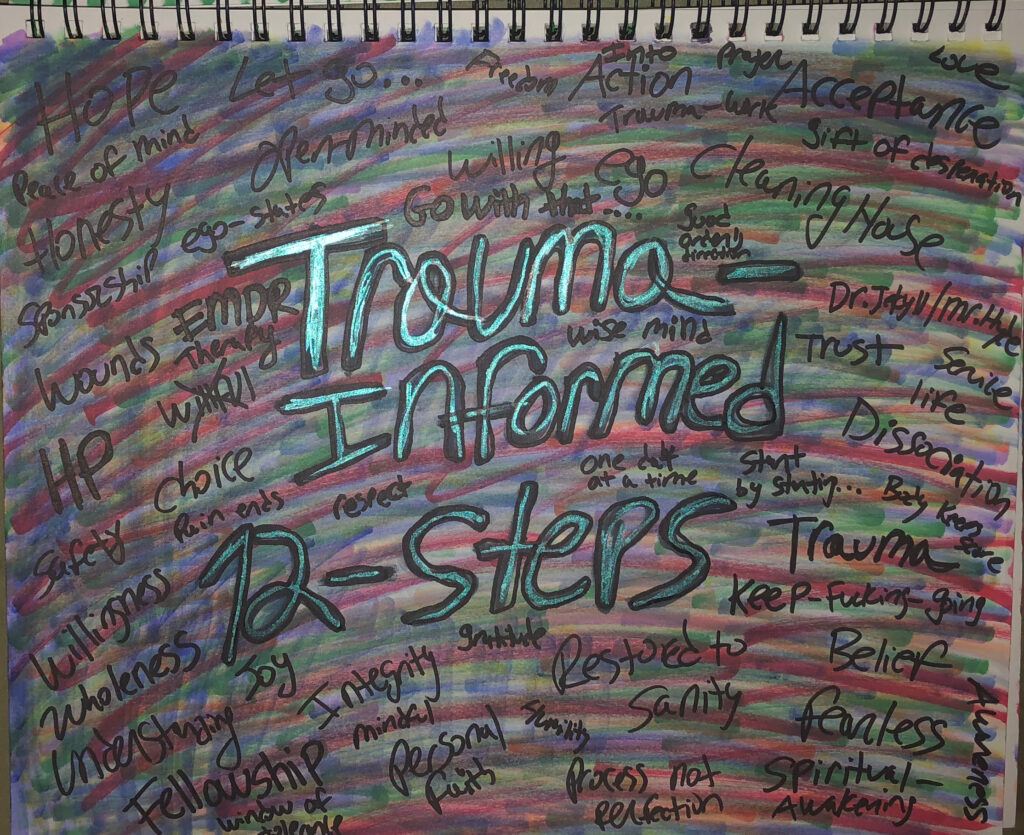 Hope
Let go...
Freedom
Into
Action
Prayer
Love
Acceptance
Peace of mind
Open-minded
Trauma-work
Gift of desperation
Willing
Ego
Cleaning House
Honesty
ego-states
Go with that....
Good
orderly
direction
Sponsorship
EMDR
Therapy
Trauma-
Informed
12-Steps
wise mind
Dr.Jekyll/Mr.Hyde
Trust
Service
life
Wounds
HP
Choice
Pain ends
respect
at a time
Start
by starting...
Dissociation
Body Keeps
Score
Safety
Trauma
Keep-Fucking-going
Willingness
Wholeness
Joy
Integrity
gratitude
Restored to
Sanity
Belief
Fearless
Awareness
Understanding
mindful
Personal
Humility
Fellowship
window of
tolerance
Process not
perfection
Spiritual-
Awakening